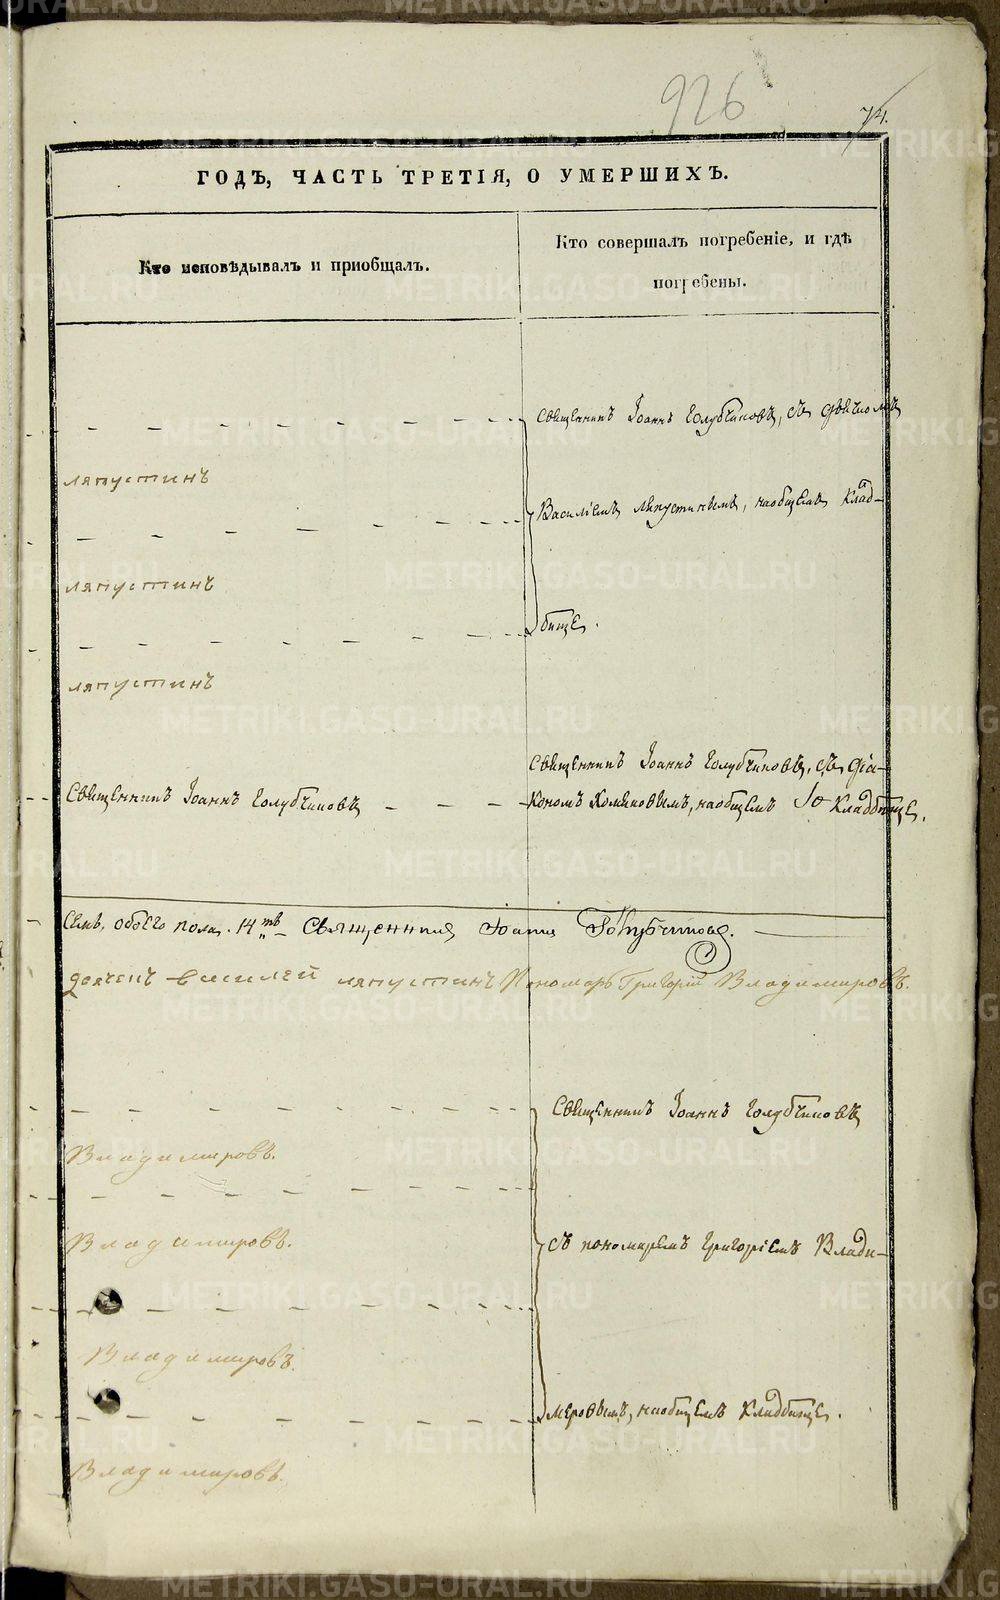 926
74.
ГОДЪ, ЧАСТЬ ТРЕТІЯ, О УМЕРШИХЪ.
Кто исповѣдывалъ и пріобщалъ.
Кто совершалъ погребеніе, и гдѣ
погребены.
Священникъ Іоаннъ Голубчиковъ, съ дьячкомъ
ляпустинъ
Василіемъ Ляпустинымъ, на общемъ клад-
ляпустинъ
бище.
ляпустинъ
Священникъ Іоаннъ Голубчиковъ, съ діа-
Священникъ Іоаннъ Голубчиковъ
кономъ Хомяковымъ, на общемъ кладбище.
обоего пола. 14ть Священникъ Іоаннъ Голубчиковъ.
дьячекъ василей ляпустинъ Пономарь Григорій Владимировъ.
Священникъ Іоаннъ Голубчиковъ
Владимировъ.
Владимировъ.
съ пономаремъ Григоріемъ Влади-
Владимировъ.
меровымъ, на общемъ кладбище.
Владимировъ.
METRIKI.GASO-URAL.RU